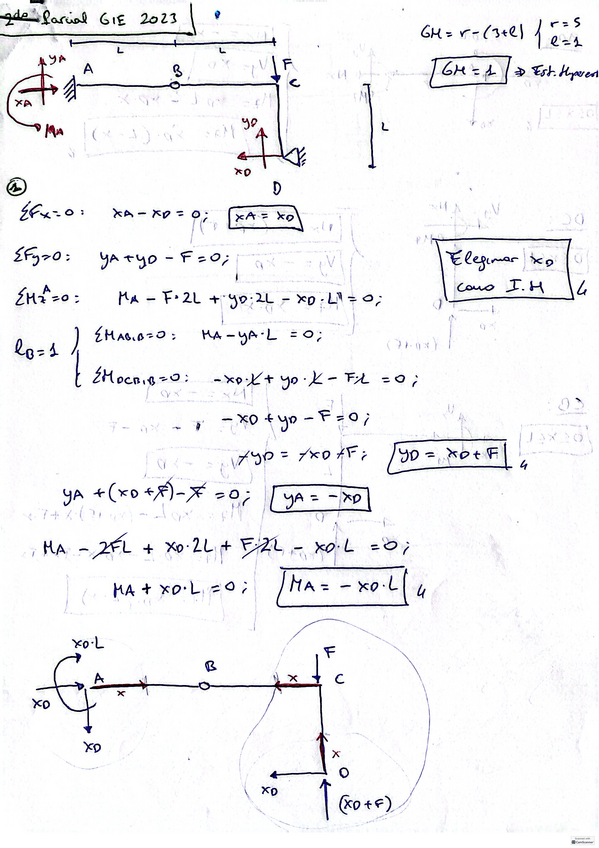 2do Parcial GIE 2023
GH = r - (3+l) { r = 5
l = 1
GH = 1 ⇒ Est. Hiperest
L L
YA A B F C
XA
MA
YD L
XD
D
1
ΣFx=0: XA - XD = 0; XA = XD
ΣFy=0: YA + YD - F = 0;
ΣMzA=0: MA - F·2L + YD·2L - XD·L = 0;
Elegimos XD
como I.H
lB=1 { ΣMAB,B=0: MA - YA·L = 0;
ΣMDCB,B=0: -XD·L + YD·L - F·L = 0;
-XD + YD - F = 0;
-YD = -XD - F; YD = XD + F
YA + (XD + F) - F = 0; YA = -XD
MA - 2FL + XD·2L + F·2L - XD·L = 0;
MA + XD·L = 0; MA = -XD·L
XD·L
A B F C
x x
XD
XD
x
D
XD
(XD+F)
CamScanner